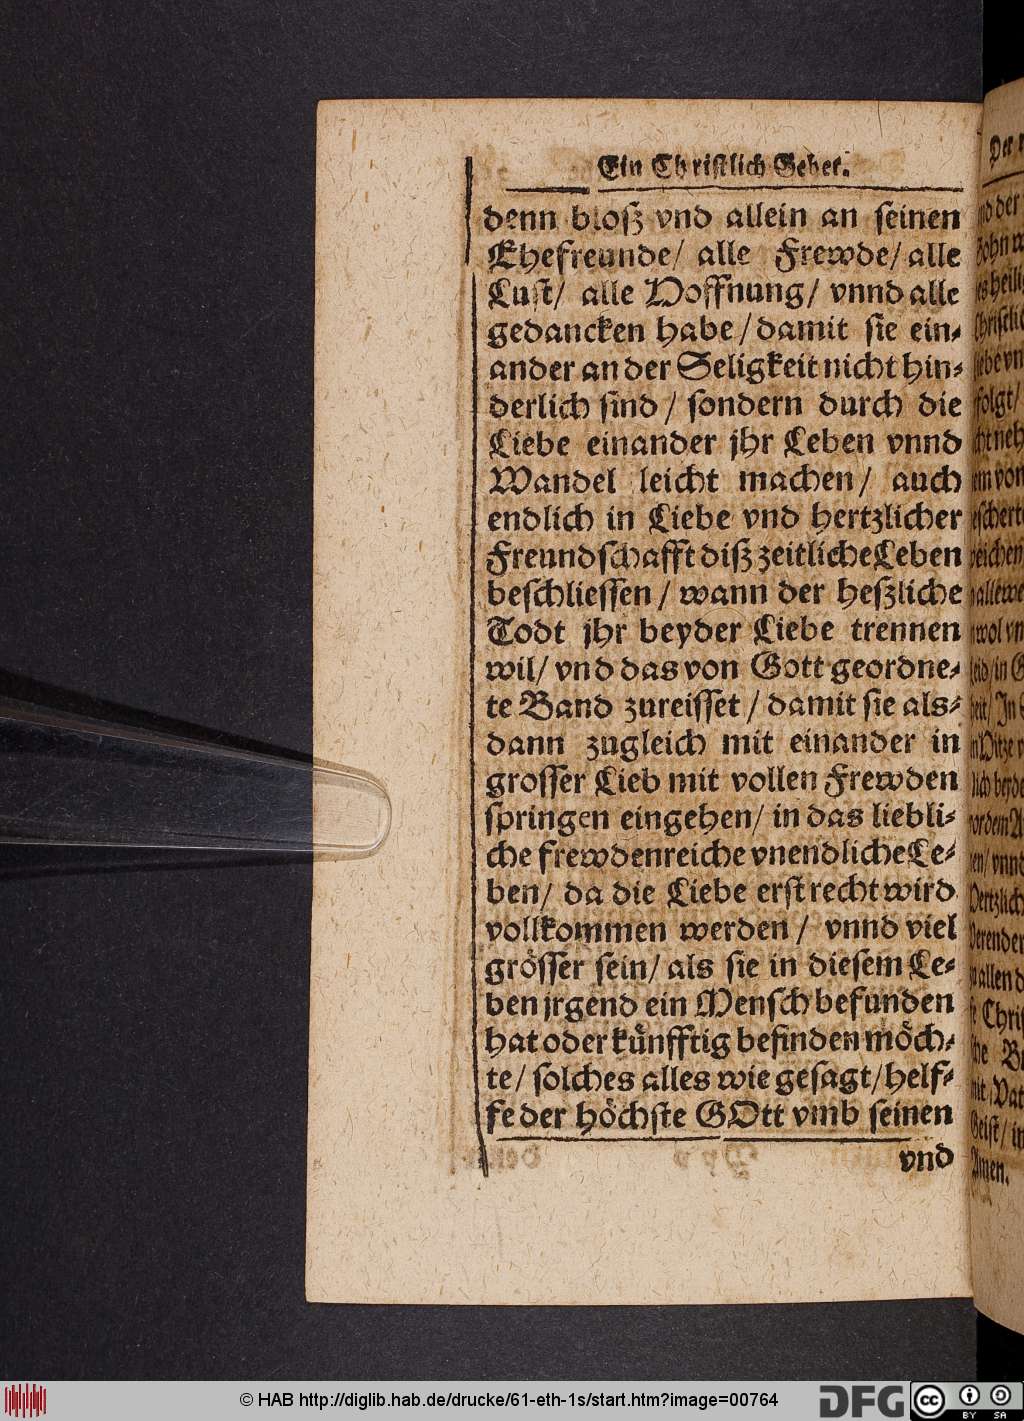 Ein Christlich Gebet.
denn bloß vnd allein an seinen
Ehefreunde/ alle Frewde/ alle
Lust/ alle Hoffnung/ vnnd alle
gedancken habe/ damit sie ein-
ander an der Seligkeit nicht hin-
derlich sind/ sondern durch die
Liebe einander jhr Leben vnnd
Wandel leicht machen/ auch
endlich in Liebe vnd hertzlicher
Freundschafft diß zeitliche Leben
beschliessen/ wann der heßliche
Todt jhr beyder Liebe trennen
wil/ vnd das von Gott geordne-
te Band zureisset/ damit sie als-
dann zugleich mit einander in
grosser Lieb mit vollen Frewden
springen eingehen/ in das liebli-
che frewdenreiche vnendliche Le-
ben/ da die Liebe erst recht wird
vollkommen werden/ vnnd viel
grösser sein/ als sie in diesem Le-
ben jrgend ein Mensch befunden
hat oder künfftig befinden möch-
te/ solches alles wie gesagt/ helf-
fe der höchste GOtt vmb seinen
vnd
Der
Amen.
© HAB http://diglib.hab.de/drucke/61-eth-1s/start.htm?image=00764
DFG
cc
BY SA